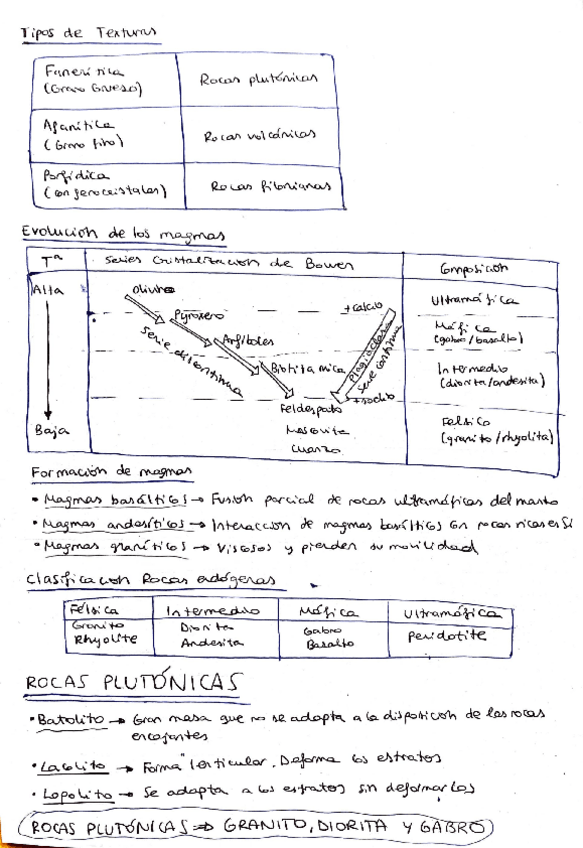 Tipos de Texturas
Fanerítica Rocas plutónicas
(Grano Grueso)
Afanítica Rocas volcánicas
(Grano fino)
Porfídica Rocas filonianas
(con fenocristales)
Evolución de los magmas
Tª Series Cristalización de Bowen Composición
Alta Olivino + calcio Ultramáfica
Pyroxeno Máfica
Anfíboles (gabro/basalto)
Serie discontinua Plagioclasa serie continua
Biotita mica Intermedio
(diorita/andesita)
+ sodio
Feldespato Félsico
Baja Moscovita (granito/rhyolita)
Cuarzo
Formación de magmas
• Magmas basálticos → Fusión parcial de rocas ultramáficas del manto
• Magmas andesíticos → Interacción de magmas basálticos con rocas ricas en Si
• Magmas graníticos → Viscosos y pierden su movilidad
Clasificación Rocas endógenas
Félsica Intermedio Máfica Ultramáfica
Granito Diorita Gabro Peridotite
Rhyolite Andesita Basalto
ROCAS PLUTÓNICAS
• Batolito → Gran masa que no se adapta a la disposición de las rocas
encajantes
• Lacolito → Forma lenticular. Deforma los estratos
• Lopolito → Se adapta a los estratos sin deformarlos
ROCAS PLUTÓNICAS ⇒ GRANITO, DIORITA Y GABRO